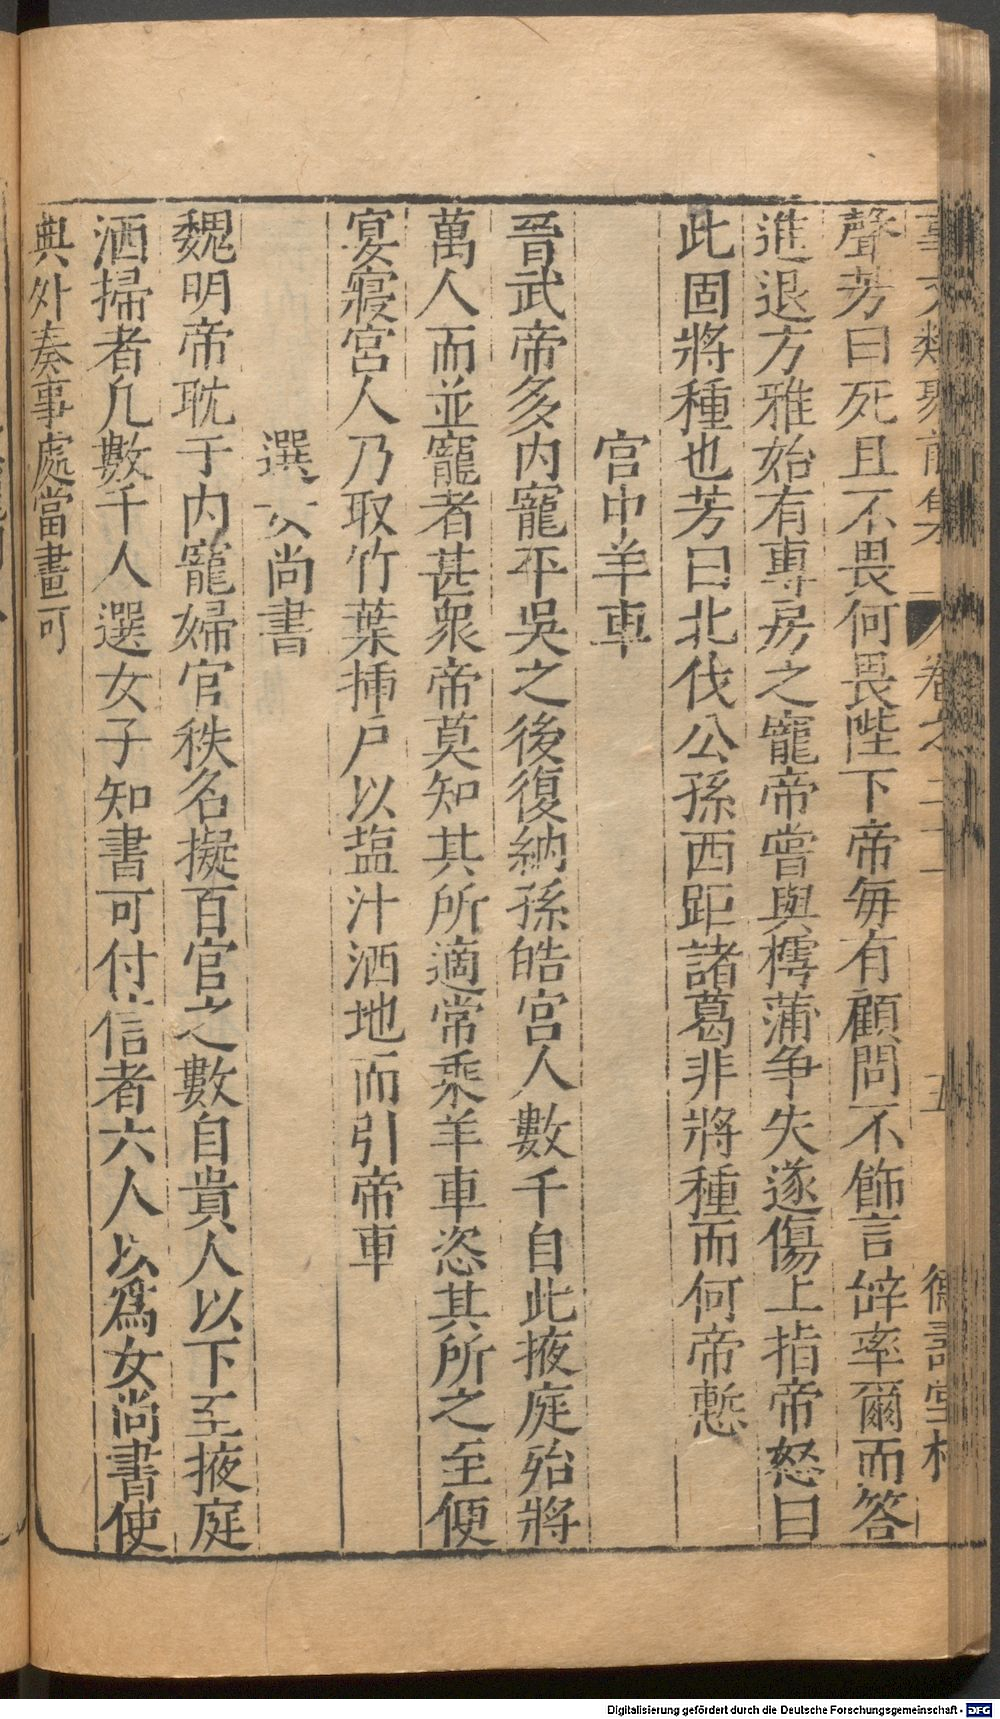 聲芳曰死且不畏何畏陛下帝每有顧問不飾言辤率爾而答
進退方雅始有專房之寵帝嘗與樗蒲爭失遂傷上指帝怒曰
此固將種也芳曰北伐公孫西距諸葛非將種而何帝慙
宮中羊車
晉武帝多内寵平吳之後復納孫皓宮人數千自此掖庭殆將
萬人而並寵者甚衆帝莫知其所適常乘羊車恣其所之至便
宴寢宮人乃取竹葉揷戸以塩汁洒地而引帝車
選女尚書
魏明帝耽于内寵婦官秩名擬百官之數自貴人以下至掖庭
洒掃者凢數千人選女子知書可付信者六人以爲女尚書使
典外奏事處當畫可
Digitalisierung gefördert durch die Deutsche Forschungsgemeinschaft - DFG